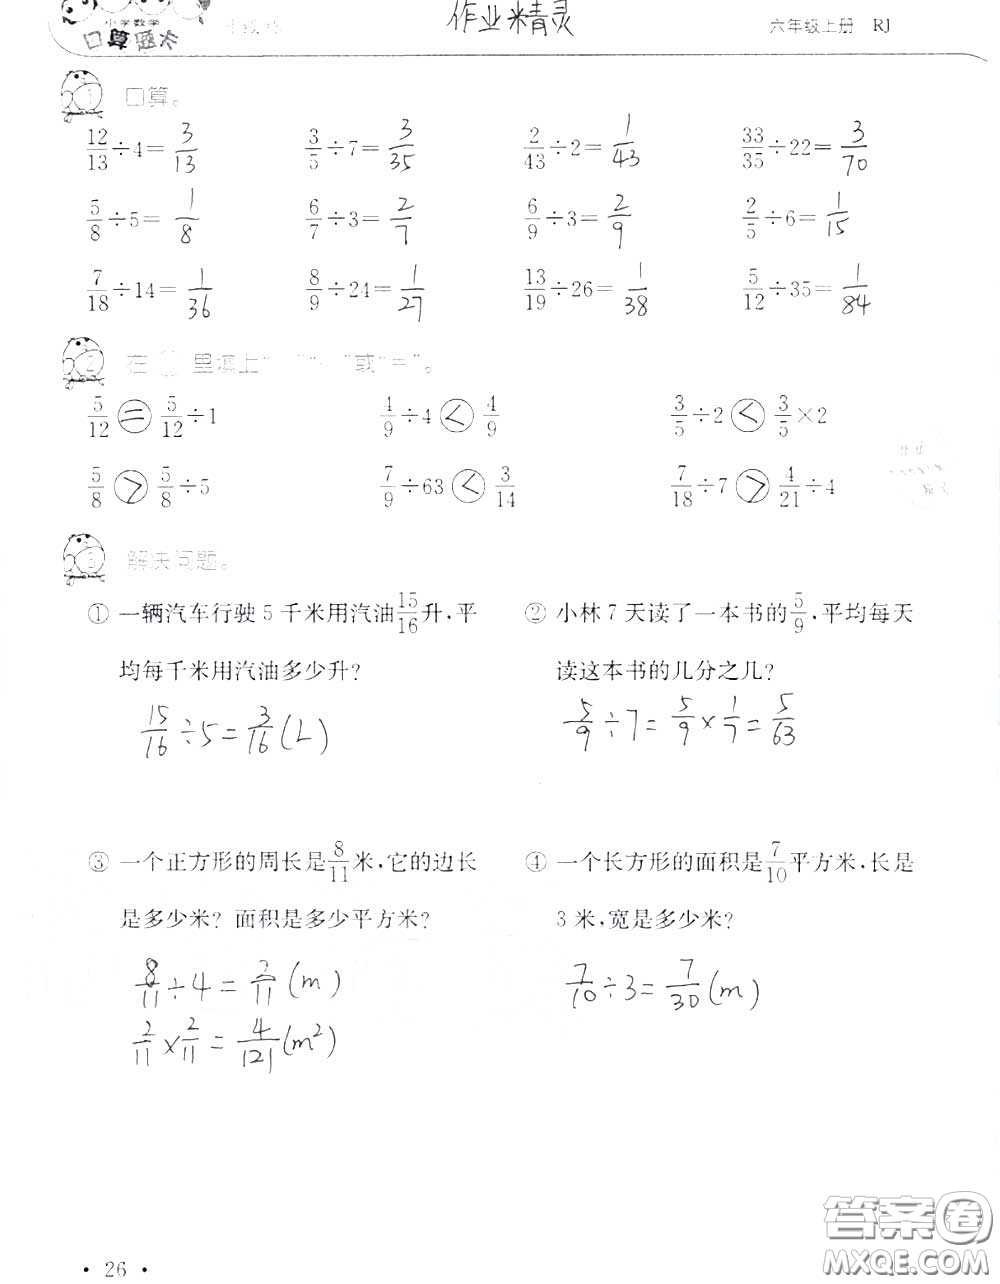 小学数学
口算题卡
作业精灵
六年级上册 RJ
1 口算。
12/13÷4=3/13 3/5÷7=3/35 2/43÷2=1/43 33/35÷22=3/70
5/8÷5=1/8 6/7÷3=2/7 6/9÷3=2/9 2/5÷6=1/15
7/18÷14=1/36 8/9÷24=1/27 13/19÷26=1/38 5/12÷35=1/84
2 在 里填上“ ”“ ”或“=”。
5/12 = 5/12÷1 4/9÷4 < 4/9 3/5÷2 < 3/5×2
5/8 > 5/8÷5 7/9÷63 < 3/14 7/18÷7 > 4/21÷4
3 解决问题。
① 一辆汽车行驶5千米用汽油15/16升,平
均每千米用汽油多少升?
15/16÷5=3/16(L)
② 小林7天读了一本书的5/9,平均每天
读这本书的几分之几?
5/9÷7=5/9×1/7=5/63
③ 一个正方形的周长是8/11米,它的边长
是多少米?面积是多少平方米?
8/11÷4=2/11(m)
2/11×2/11=4/121(m²)
④ 一个长方形的面积是7/10平方米,长是
3米,宽是多少米?
7/10÷3=7/30(m)
• 26 •
答案卷
MXQE.COM